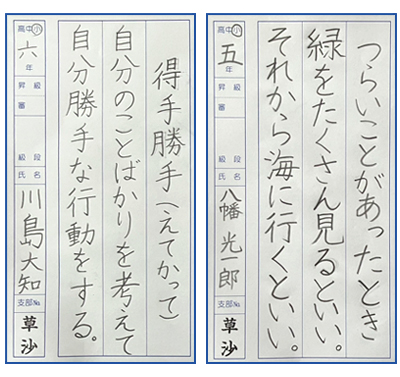 つらいことがあったとき
緑をたくさん見るといい。
それから海に行くといい。
高中小
五年
昇級審
級段
氏名
八幡光一郎
支部№
草沙
得手勝手(えてかって)
自分のことばかりを考えて
自分勝手な行動をする。
高中小
六年
昇級審
級段
氏名
川島大知
支部№
草沙